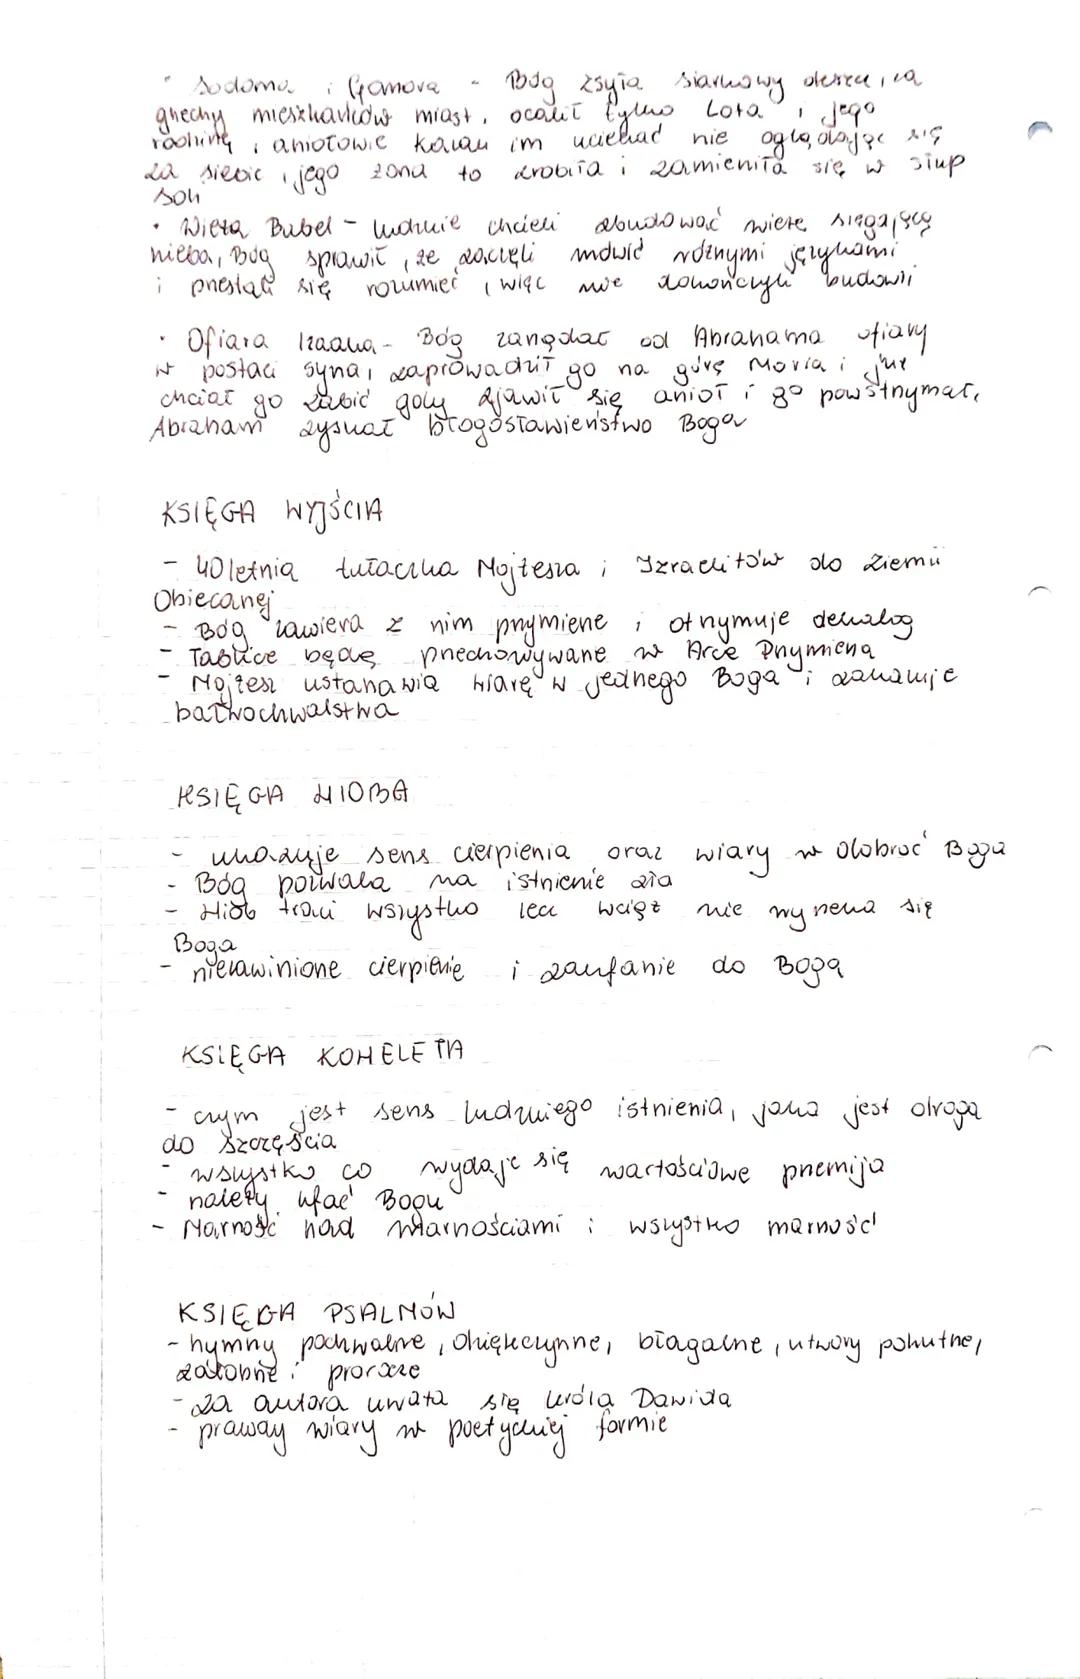 • Sodoma i Gomora - Bóg zsyła siarkowy deszcz, za
grzechy mieszkańców miast, ocalił tylko Lota i jego
rodzinę, aniołowie kazali im uciekać nie oglądając się
za siebie, jego żona to zrobiła i zamieniła się w słup
soli
• Wieża Babel - ludzie chcieli zbudować wieżę sięgającą
nieba, Bóg sprawił, że zaczęli mówić różnymi językami
i przestali się rozumieć, więc nie dokończyli budowli
• Ofiara Izaaka - Bóg zarządał od Abrahama ofiary
w postaci syna, zaprowadził go na górę Moria i już
chciał go zabić gdy zjawił się anioł i go powstrzymał,
Abraham zyskał błogosławieństwo Boga
KSIĘGA WYJŚCIA
- 40letnia tułaczka Mojżesza i Izraelitów do Ziemii
Obiecanej
- Bóg zawiera z nim przymierze i otrzymuje dekalog
- Tablice będą przechowywane w Arce Przymierza
- Mojżesz ustanawia wiarę w jednego Boga i zakazuje
bałwochwalstwa
KSIĘGA HIOBA
- ukazuje sens cierpienia oraz wiary w dobroć Boga
- Bóg pozwala na istnienie zła
- Hiob traci wszystko lecz wciąż nie wyrzeka się
Boga
- niezawinione cierpienie i zaufanie do Boga
KSIĘGA KOHELETA
- czym jest sens ludzkiego istnienia, jaka jest droga
do szczęścia
- wszystko co wydaje się wartościowe przemija
- należy ufać Bogu
- Marność nad marnościami i wszystko marność
KSIĘGA PSALMÓW
- hymny pochwalne, dziękczynne, błagalne, utwory pokutne,
żałobne i prorocze
- za autora uważa się króla Dawida
- prawdy wiary w poetyckiej formie